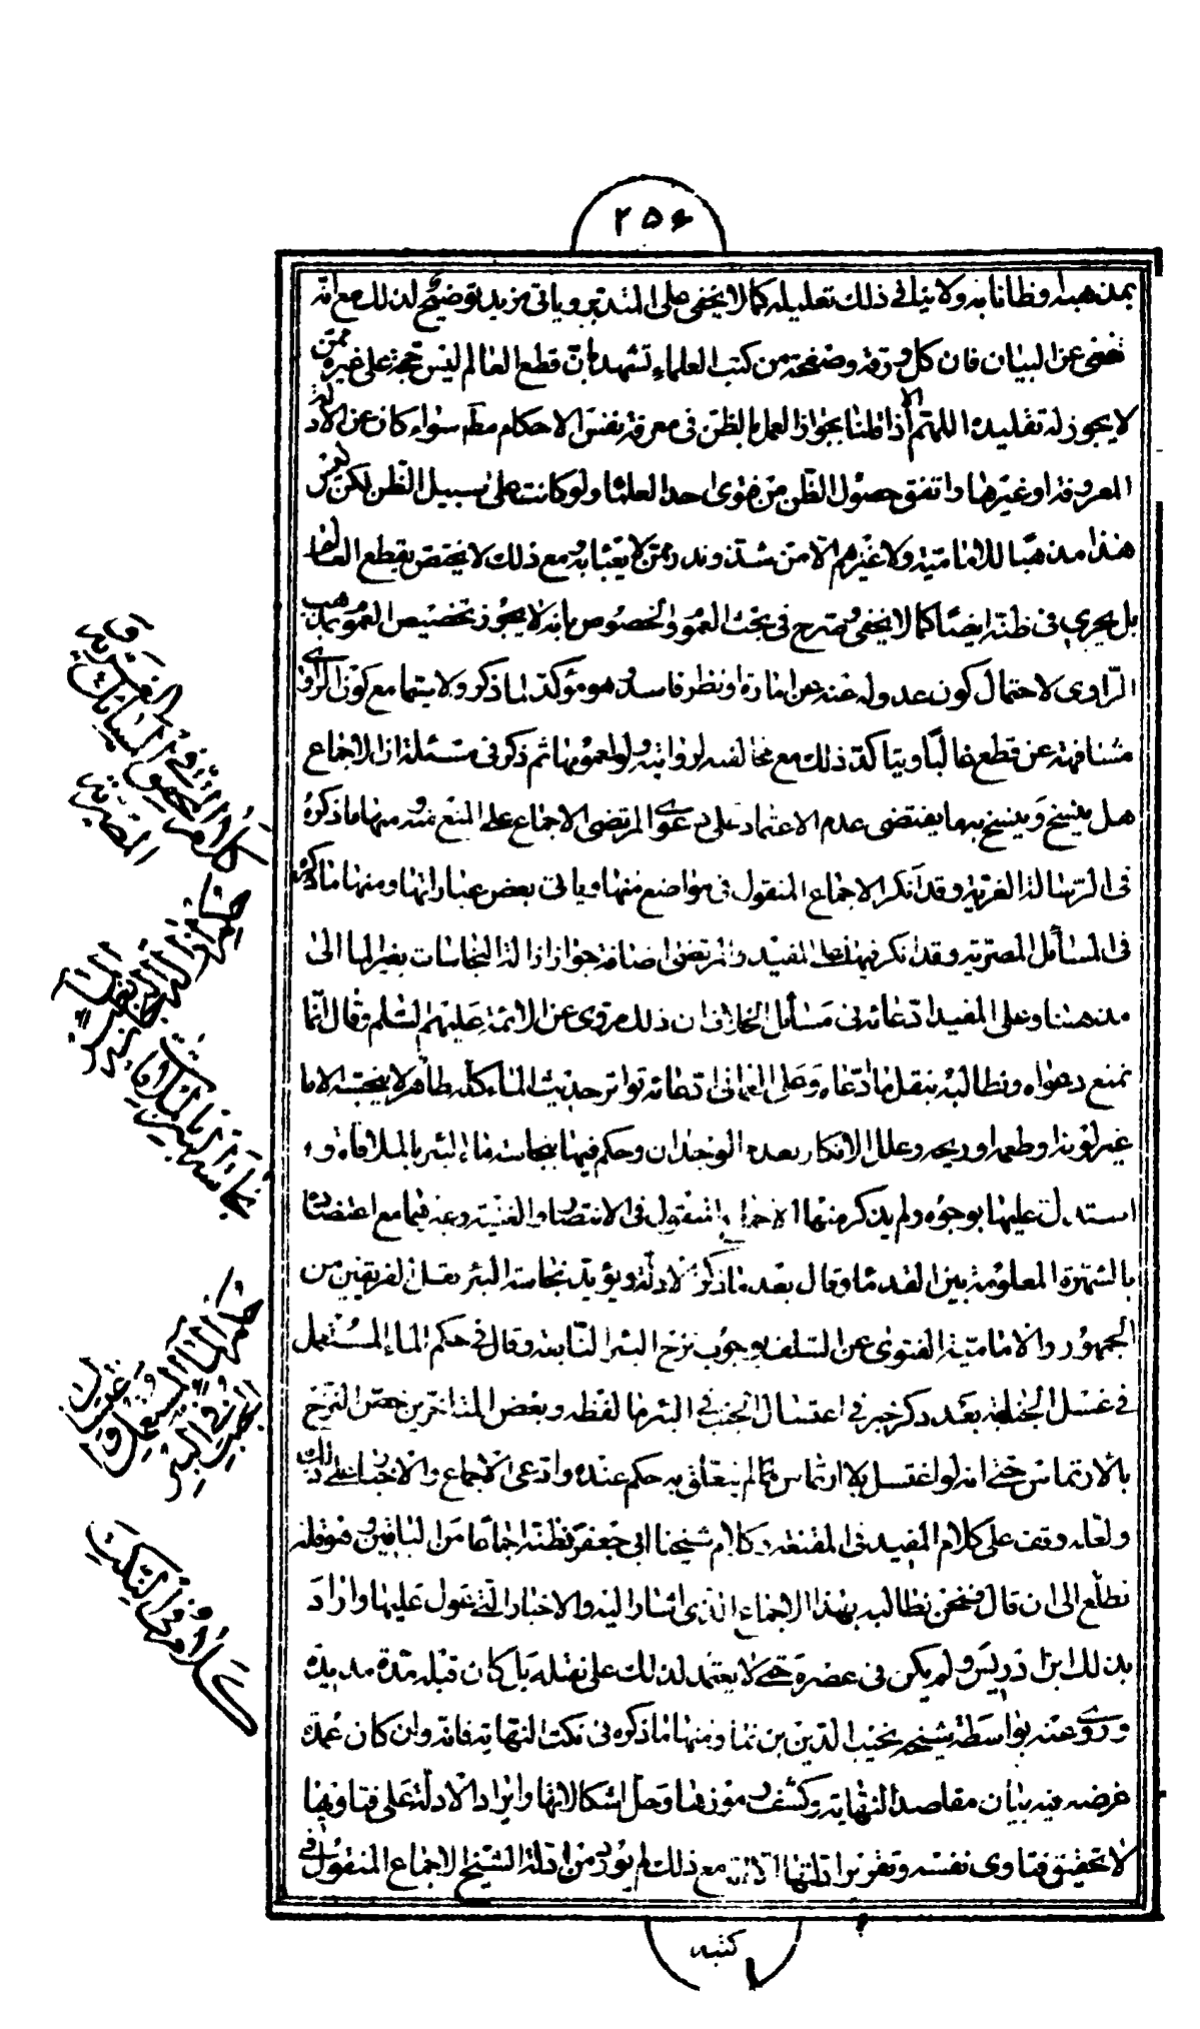 ٢٥۶
بمذهبه وظانا به ولا ينافي ذلك تعليله كما لا يخفى على المتدبر وياتي مزيد توضيح لذلك مع انه
غنى عن البيان فان كل ورقة وصفحة من كتب العلماء تشهد بان قطع العالم ليس حجة على غيره ممن
لا يجوز له تقليده اللهم الا اذا قلنا بجواز العمل بالظن في معرفة نفس الاحكام مطلقا سواء كان عن الادلة
المعروفة او غيرها واتفق حصول الظن من فتوى احد العلماء ولو كانت على سبيل الظن لكن ليس
هذا مذهبا للامامية ولا غيرهم الا من شذ وندر ممن لا يعبا به ومع ذلك لا يختص بقطع العالم
بل يجري في ظنه ايضا كما لا يخفى وصرح في بحث العموم والخصوص بانه لا يجوز تخصيص العموم بمذهب
الراوي لاحتمال كون عدوله عنه عن امارة او نظر فاسد وهو مؤكد لما ذكر ولا سيما مع كون الراوي
مشافهة عن قطع غالبا ويتاكد ذلك مع مخالفته لروايته ولو لعمومها ثم ذكر في مسئلة ان الاجماع
هل ينسخ وينسخ به ما يقتضي عدم الاعتماد على دعوى المرتضى الاجماع على المنع عنه ومنها ما ذكره
في الرسالة الغرية وقد انكر الاجماع المنقول في مواضع منها وياتي بعض عباراتها ومنها ما ذكره
في المسائل المصرية وقد انكر فيها على المفيد والمرتضى اضافة جواز ازالة النجاسات بغير الماء الى
مذهبنا وعلى المفيد ادعائه في مسائل الخلاف ان ذلك مروى عن الائمة عليهم السلم وقال انما
نمنع دعواه ونطالبه بنقل ما ادعاه وعلى العماني ادعائه تواتر حديث الماء كله طاهر لا ينجسه الا ما
غير لونه او طعمه او ريحه وعلل الانكار بعدم الوجدان وحكم فيها بنجاسة ماء البئر بالملاقاة و
استدل عليها بوجوه ولم يذكر منها الاجماع المنقول في الانتصار والغنية وغيرهما مع اعتضاده
بالشهرة المعلومة بين القدماء وقال بعد ما ذكر الادلة ويؤيد نجاسة البئر نقل الفريقين من
الجمهور والامامية الفتوى عن السلف بوجوب نزح البئر النابعة وقال في حكم الماء المستعمل
في غسل الجنابة بعد ذكر خبر في اغتسال الجنب في البئر ما لفظه وبعض المتاخرين خص النزح
بالارتماس حتى انه لو اغتسل بلا ارتماس مما لم يتعلق به حكم عنده وادعى الاجماع والاخبار على ذلك
ولعله وقف على كلام المفيد في المقنعة وكلام شيخنا ابي جعفر فظنه اجماعا من الباقين وفوق كله
نطلع الى ان قال فنحن نطالبه بهذا الاجماع الذي اشار اليه والاخبار التي عول عليها واراد
بذلك ابن ادريس ولم يكن في عصره حتى لا يعتمد لذلك على نقله بل كان قبله بمدة مديدة
وروى عنه بواسطة شيخه نجيب الدين بن نما ومنها ما ذكره في نكت النهاية فانه وان كان عمدة
غرضه فيه بيان مقاصد النهاية وكشف رموزها وحل اشكالاتها وايراد الادلة على فتاويها
لا تحقيق فتاوى نفسه وتقرير ادلتها الا انه مع ذلك لم يورد من ادلة الشيخ الاجماع المنقول في
كتبه
كلام المحقق في المسائل الغرية و
المصرية
حكم ازالة النجاسة بغير الماء
نجاسة البئر بالملاقاة
حكم الماء المستعمل واغتسال
الجنب في البئر
كلامه في النكت